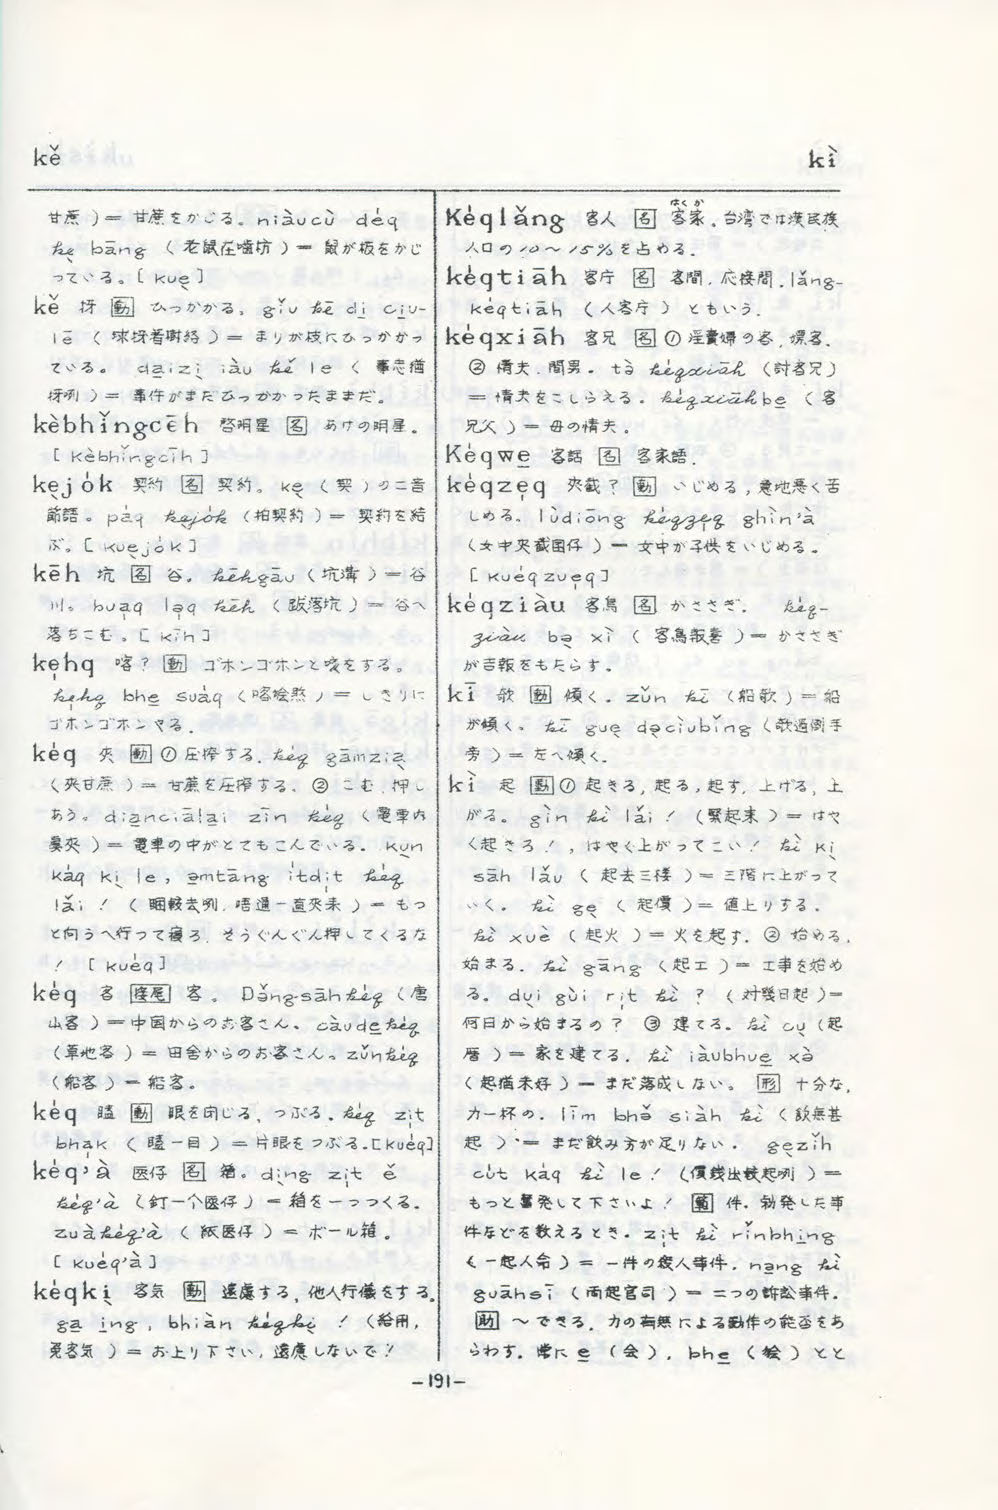 kě
kì
甘蔗 ) ＝ 甘蔗をかじる。niàucù déq
kẹ bāng ( 老鼠在嚙枋 ) ＝ 鼠が板をかじ
っている。[ kuẹ ]
kě 抙 動 ひっかかる。gǐu kě dị cịu-
lē ( 球抙着樹絡 ) ＝ まりが枝にひっかかっ
ている。 dạizị iàu kě le ( 事志猶
抙咧 ) ＝ 事件がまだひっかかったままだ。
kèbhǐngcēh 啓明星 名 あけの明星。
[ kèbhǐngcīh ]
kẹjók 契約 名 契約。kẹ ( 契 ) の二音
節語。páq kẹjók ( 拍契約 ) ＝ 契約を結
ぶ。[ kuẹjók ]
kēh 坑 名 谷。kēhgāu ( 坑溝 ) ＝ 谷
川。buạq lạq kēh ( 跋落坑 ) ＝ 谷へ
落ちこむ。[ kīh ]
kẹhq 喀？ 動 ゴホンゴホンと咳をする。
kẹhq bhe suáq ( 喀𣍐煞 ) ＝ しきりに
ゴホンゴホンやる。
kéq 夾 動 ① 圧搾する。kéq gāmzià
( 夾甘蔗 ) ＝ 甘蔗を圧搾する。② こむ、押し
あう。diạnciālại zīn kéq ( 電車内
真夾 ) ＝ 電車の中がとてもこんでいる。kụn
káq kị le, ạmtāng ítdịt kéq
lǎi ! ( 睏較去咧，唔通一直夾来 ) ＝ もっ
と向うへ行って寝ろ、そうぐんぐん押してくるな
! [ kuéq ]
kéq 客 接尾 客。Dǒng-sāhkéq ( 唐
山客 ) ＝ 中国からのお客さん。càudekéq
( 草地客 ) ＝ 田舎からのお客さん。zǔnkéq
( 船客 ) ＝ 船客。
kéq 瞌 動 眼を閉じる、つぶる。kéq zịt
bhak ( 瞌一目 ) ＝ 片眼をつぶる。[ kuéq ]
kéq'à 医仔 名 箱。dịng zịt ě
kéq'à ( 釘一个医仔 ) ＝ 箱を一つつくる。
zuàkéq'à ( 紙医仔 ) ＝ ボール箱。
[ kuéq'à ]
kéqkị 客気 動 遠慮する、他人行儀をする。
ga ịng, bhiàn kéqkị ! ( 給用，
免客気 ) ＝ お上り下さい、遠慮しないで！
Kéqlǎng 客人 名 客家。台湾では漢民族
はくか
人口の10～15％を占める。
kéqtiāh 客庁 名 客間、応接間。lǎng-
kéqtiāh ( 人客庁 ) ともいう。
kéqxiāh 客兄 名 ① 淫賣婦の客、嫖客。
② 情夫、間男。tò kéqxiāh ( 討客兄 )
＝ 情夫をこしらえる。kéqxiāhbe ( 客
兄父 ) ＝ 母の情夫。
Kéqwe 客話 名 客家語。
kéqzẹq 夾截？ 動 いじめる、意地悪く苦
しめる。lùdiōng kéqzẹq ghìn'à
( 女中夾截囝仔 ) ＝ 女中が子供をいじめる。
[ kuéqzuẹq ]
kéqziàu 客鳥 名 かささぎ。 kéq-
ziàu bạ xì ( 客鳥報喜 ) ＝ かささぎ
が吉報をもたらす。
kī 欹 動 傾く。zǔn kī ( 船欹 ) ＝ 船
が傾く。kī guẹ dạciubǐng ( 欹過倒手
旁 ) ＝ 左へ傾く。
kì 起 動 ① 起きる、起る、起す、上げる、上
がる。gìn kì lǎi ! ( 緊起来 ) ＝ はや
く起きろ！，はやく上がってこい！ kì kị
sāh lǎu ( 起去三楼 ) ＝ 三階に上がって
いく。kì gẹ ( 起價 ) ＝ 値上りする。
kì xuè ( 起火 ) ＝ 火を起す。② 始める、
始まる。kì gāng ( 起工 ) ＝ 工事を始め
る。dụi gùi rịt kì ? ( 対幾日起 ) ＝
何日から始まるの？ ③ 建てる。kì cụ ( 起
厝 ) ＝ 家を建てる。kì iàubhue xò
( 起猶未好 ) ＝ まだ落成しない。形 十分な、
力一杯の。līm bhǒ siàh kì ( 飲無甚
起 ) ＝ まだ飲み方が足りない。gẹzǐh
cút káq kì le ! ( 價銭出較起咧 ) ＝
もっと奮発して下さいよ！ 範 件。勃発した事
件などを数えるとき。zịt kì rǐnbhịng
( 一起人命 ) ＝ 一件の殺人事件。nạng kì
guāhsī ( 両起官司 ) ＝ 二つの訴訟事件。
助 ～できる。力の有無による動作の能否をあ
らわす。常に e ( 会 )，bhe ( 𣍐 ) とと
-191-